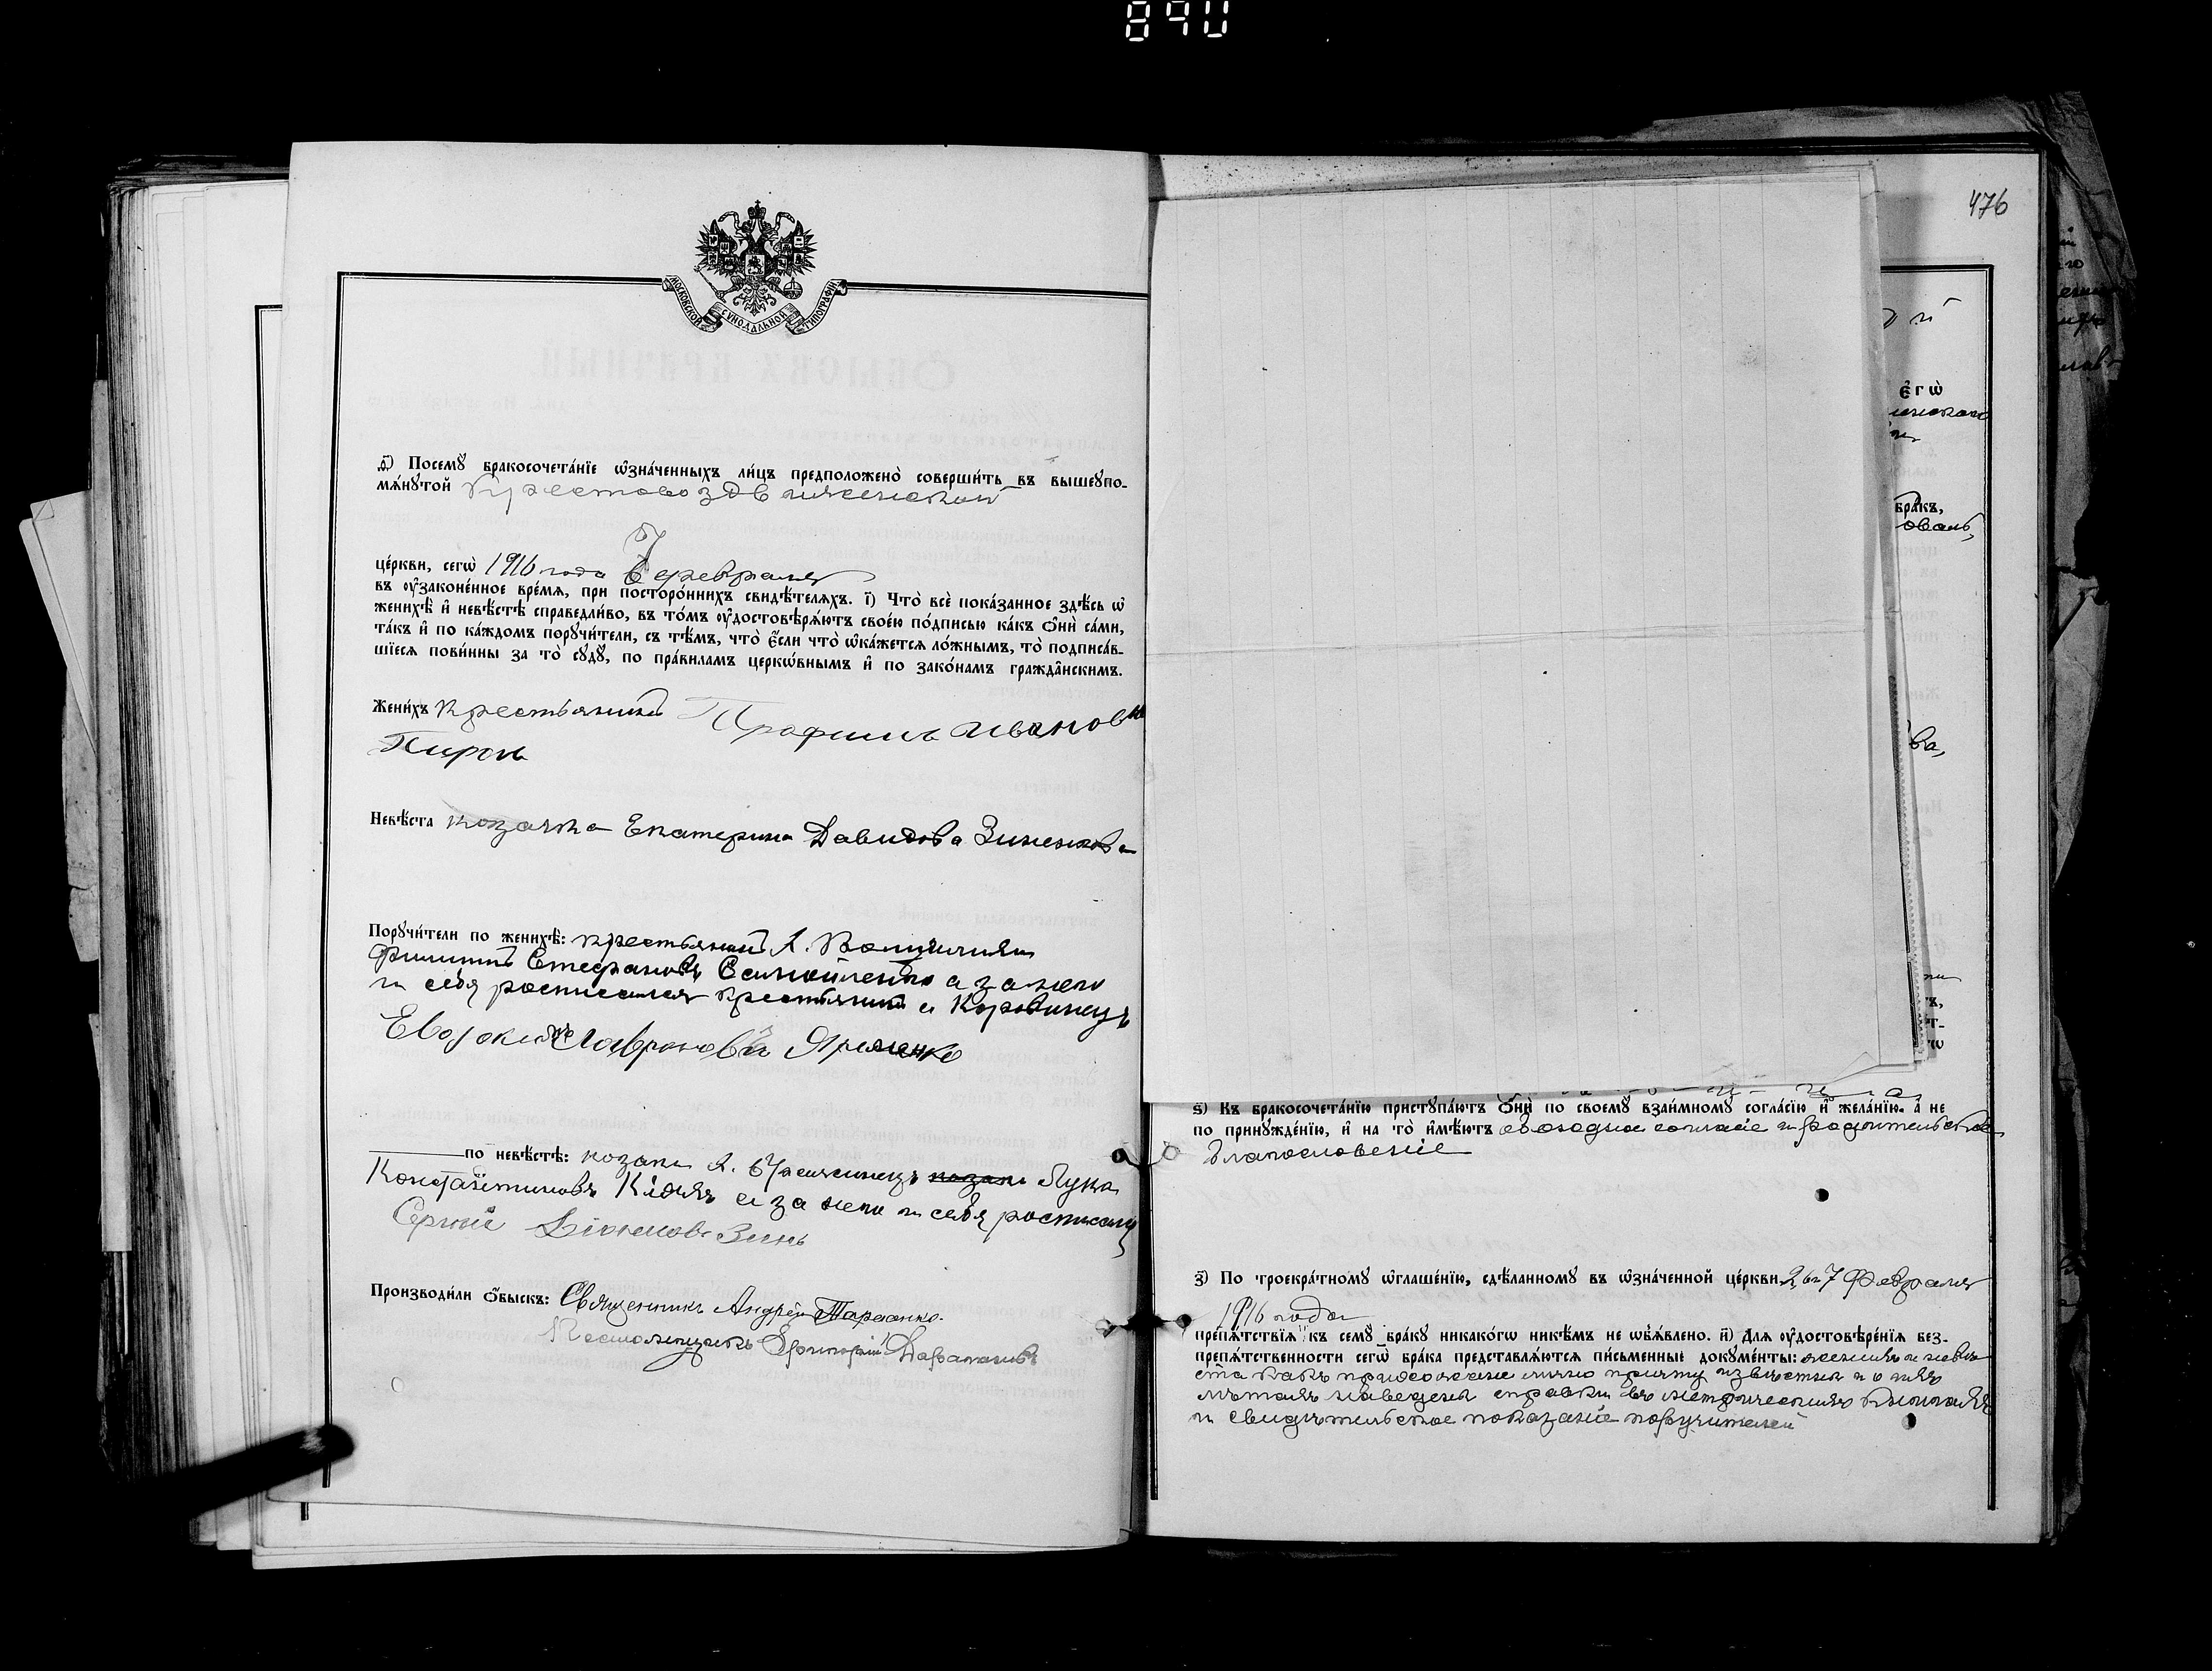 890
МОСКОВСКОЙ СѴНОДАЛЬНОЙ ТИПОГРАФІИ
д҃) Посемꙋ бракосочета́нїе ѡ҆зна́ченныхъ ли́цъ предположено̀ соверши́ть въ вышеꙋпо-
мѧ́нꙋтой Крестовоздвиженской
це́ркви, сегѡ̀ 1916 года 7 февраля
въ ᲂу҆законе́нное вре́мѧ, при посторо́ннихъ свидѣ́телѧхъ. і҃) Что̀ всѐ пока́занное здѣ́сь ѡ҆
женихѣ̀ и҆ невѣ́стѣ справедли́во, въ то́мъ ᲂу҆достовѣрѧ́ютъ свое́ю по́дписью ка́къ ѻ҆нѝ са́ми,
та́къ и҆ по ка́ждомъ порꙋчи́тели, съ тѣ́мъ, что̀ є҆́сли что̀ ѡ҆ка́жетсѧ ло́жнымъ, то̀ подписа́в-
шїесѧ пови́нны за то̀ сꙋдꙋ̀, по пра́виламъ церкѡ́внымъ и҆ по зако́намъ гражда̂нскимъ.
Жени́хъ крестьянинъ Трофимъ Иванов
Пирог
Невѣ́ста козачка Екатерина Давидова Зиненкова
Порꙋчи́тели по женихѣ̀: крестьянинъ д.
Филиппъ Стефановъ Самойленко а за него
и себя росписался крестьянинъ с Коровинецъ
Евдокимъ Лавроновъ Яременко
по невѣ́стѣ: козаки д. козакъ Лука
Константиновъ а за него и себя росписался
Сергій Зинь
Производи́ли ѻ҆́быскъ: Священникъ Андрей
Псаломщикъ Григорій
476
є҆гѡ̀
бра́къ,
ова,
ѕ҃) Къ бракосочета́нїю пристꙋпа́ютъ ѻ҆нѝ по своемꙋ̀ взаи́мномꙋ согла́сїю и҆ жела́нїю, а҆ не
по принꙋжде́нїю, и҆ на то̀ и҆мѣ́ютъ свободное согласіе и родительское
благословеніе
з҃) По троекра́тномꙋ ѡ҆глаше́нїю, сдѣ́ланномꙋ въ ѡ҆зна́ченной це́ркви 2, 6 и 7 Февраля
1916 года
препѧ́тствїѧ къ семꙋ̀ бра́кꙋ никако́гѡ никѣ́мъ не ѡ҆б̾ѧ́влено. и҃) Длѧ ᲂу҆достовѣре́нїѧ без-
препѧ́тственности сегѡ̀ бра́ка представлѧ́ютсѧ пи́сьменные докꙋме́нты: женихъ и невѣ
ста какъ прихожане лично причту извѣстны и о ихъ
лѣтахъ наведены справки въ метрическихъ книгахъ
и свидѣтельское показаніе поручителей